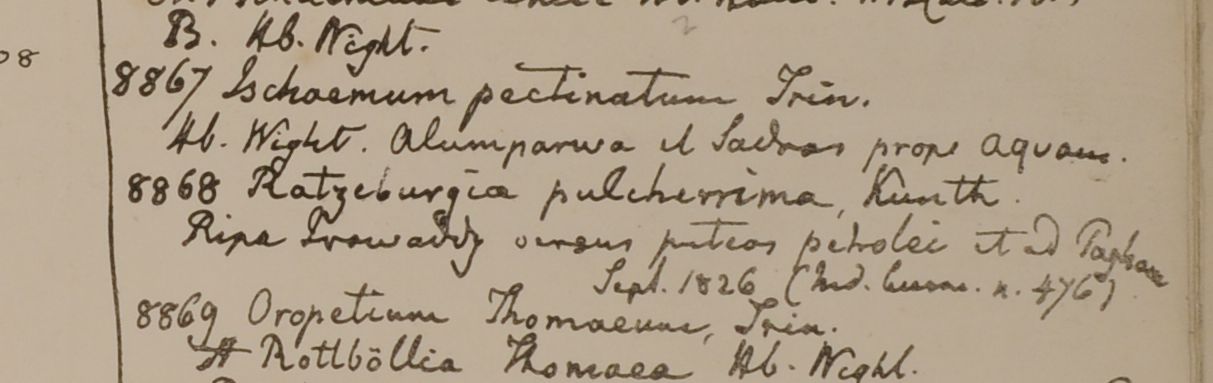 B. Hb. Wight.
08
8867 Ischaemum pectinatum Trin.
Hb. Wight. Alumparwa et Sadras prope aquam.
8868 Ratzeburgia pulcherrima, Kunth.
Ripa Irawaddy versus puteos petrolei et ad Pagham
Sept. 1826 (Ind. burm. n. 476)
8869 Oropetium Thomaeum, Trin.
Rottböllia Thomaea Hb. Wight.